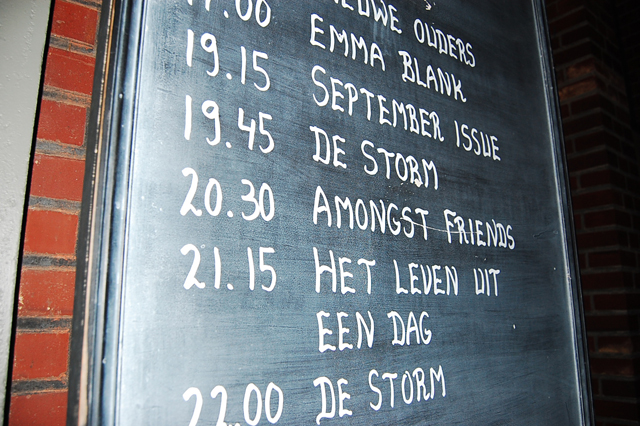 OUDERS
EMMA BLANK
19.15 SEPTEMBER ISSUE
19.45 DE STORM
20.30 AMONGST FRIENDS
21.15 HET LEVEN UIT
EEN DAG
22.00 DE STORM